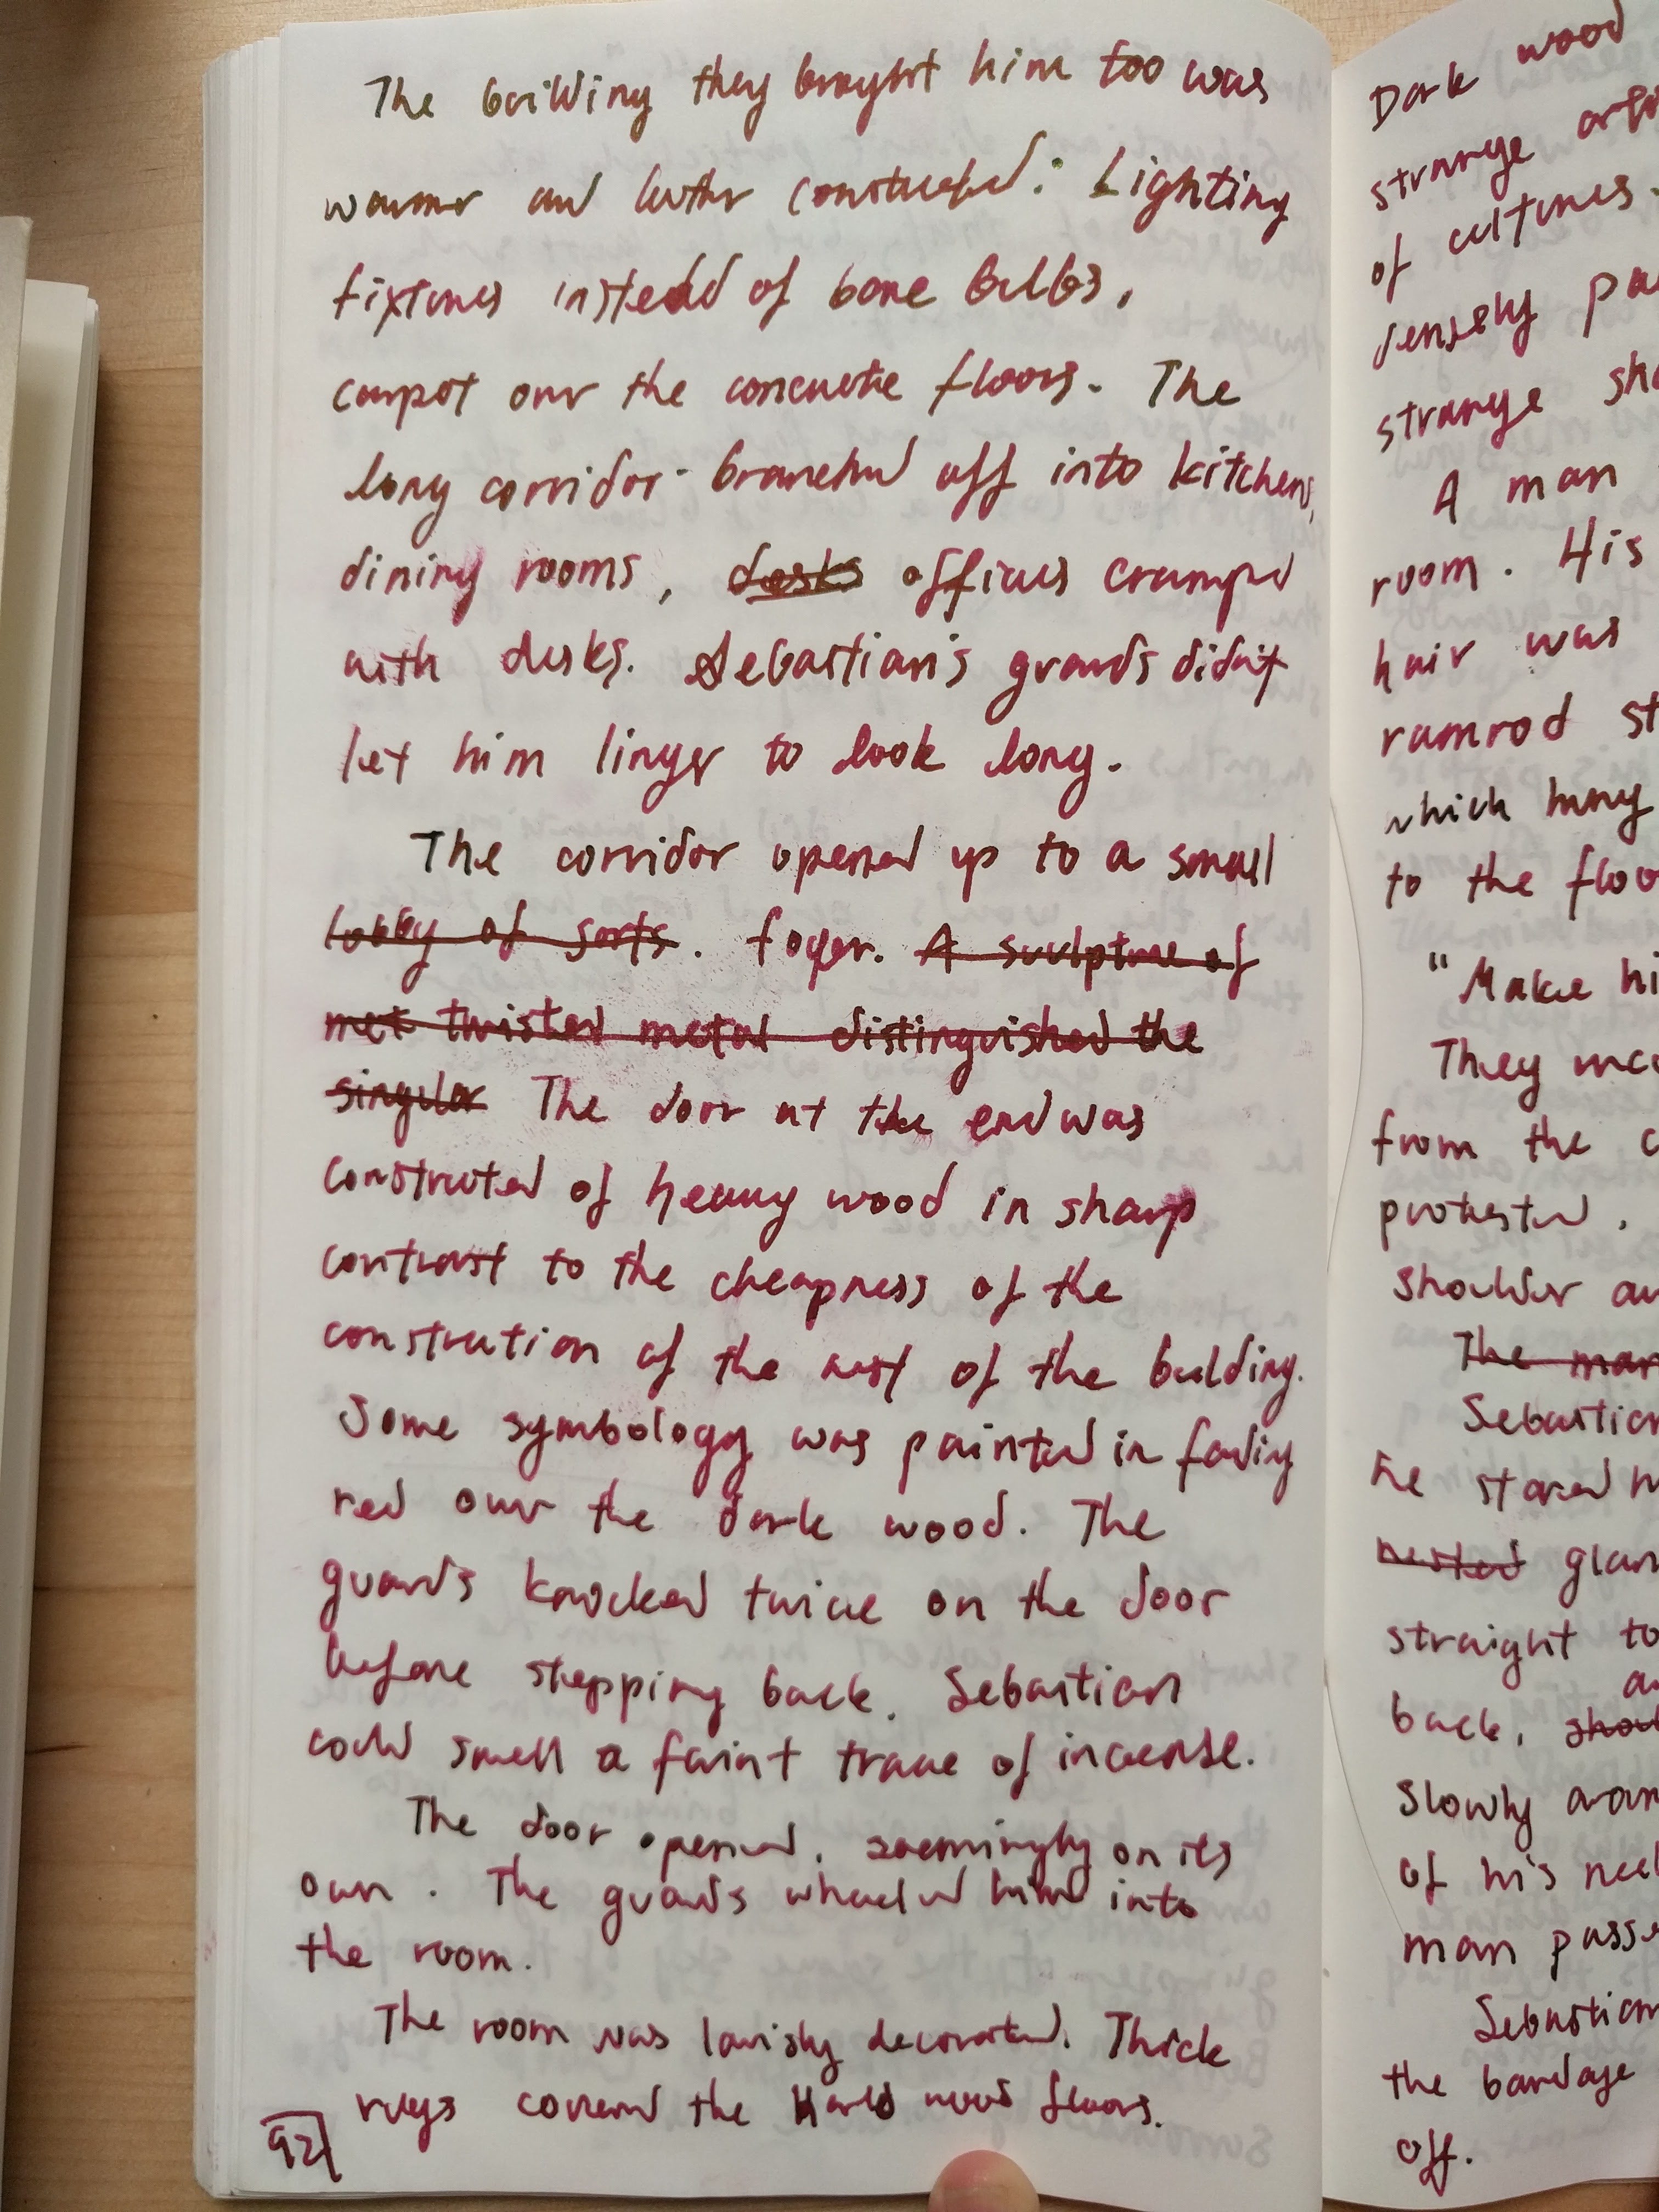 The building they brought him too was
warmer and better constructed: Lighting
fixtures instead of bare bulbs,
carpet over the concrete floors. The
long corridor branched off into kitchens,
dining rooms, desks offices cramped
with desks. Sebastian's guards didn't
let him linger to look long.
The corridor opened up to a small
lobby of sorts. foyer. A sculpture of
met twisted metal distinguished the
singular The door at the end was
constructed of heavy wood in sharp
contrast to the cheapness of the
construction of the rest of the building.
Some symbology was painted in fading
red over the dark wood. The
guards knocked twice on the door
before stepping back. Sebastian
could smell a faint trace of incense.
The door opened, seemingly on its
own. The guards wheeled him into
the room.
The room was lavishly decorated. Thick
rugs covered the Hard wood floors.
92
Dark wood
strange
of cultures.
densely
strange
A man
room. His
hair was
ramrod
which hung
to the
"Make
They
from the
protested.
shoulder
The man
Sebastian
he stared
straight to
back,
slowly
of his
man
Sebastian
the bandage
off.